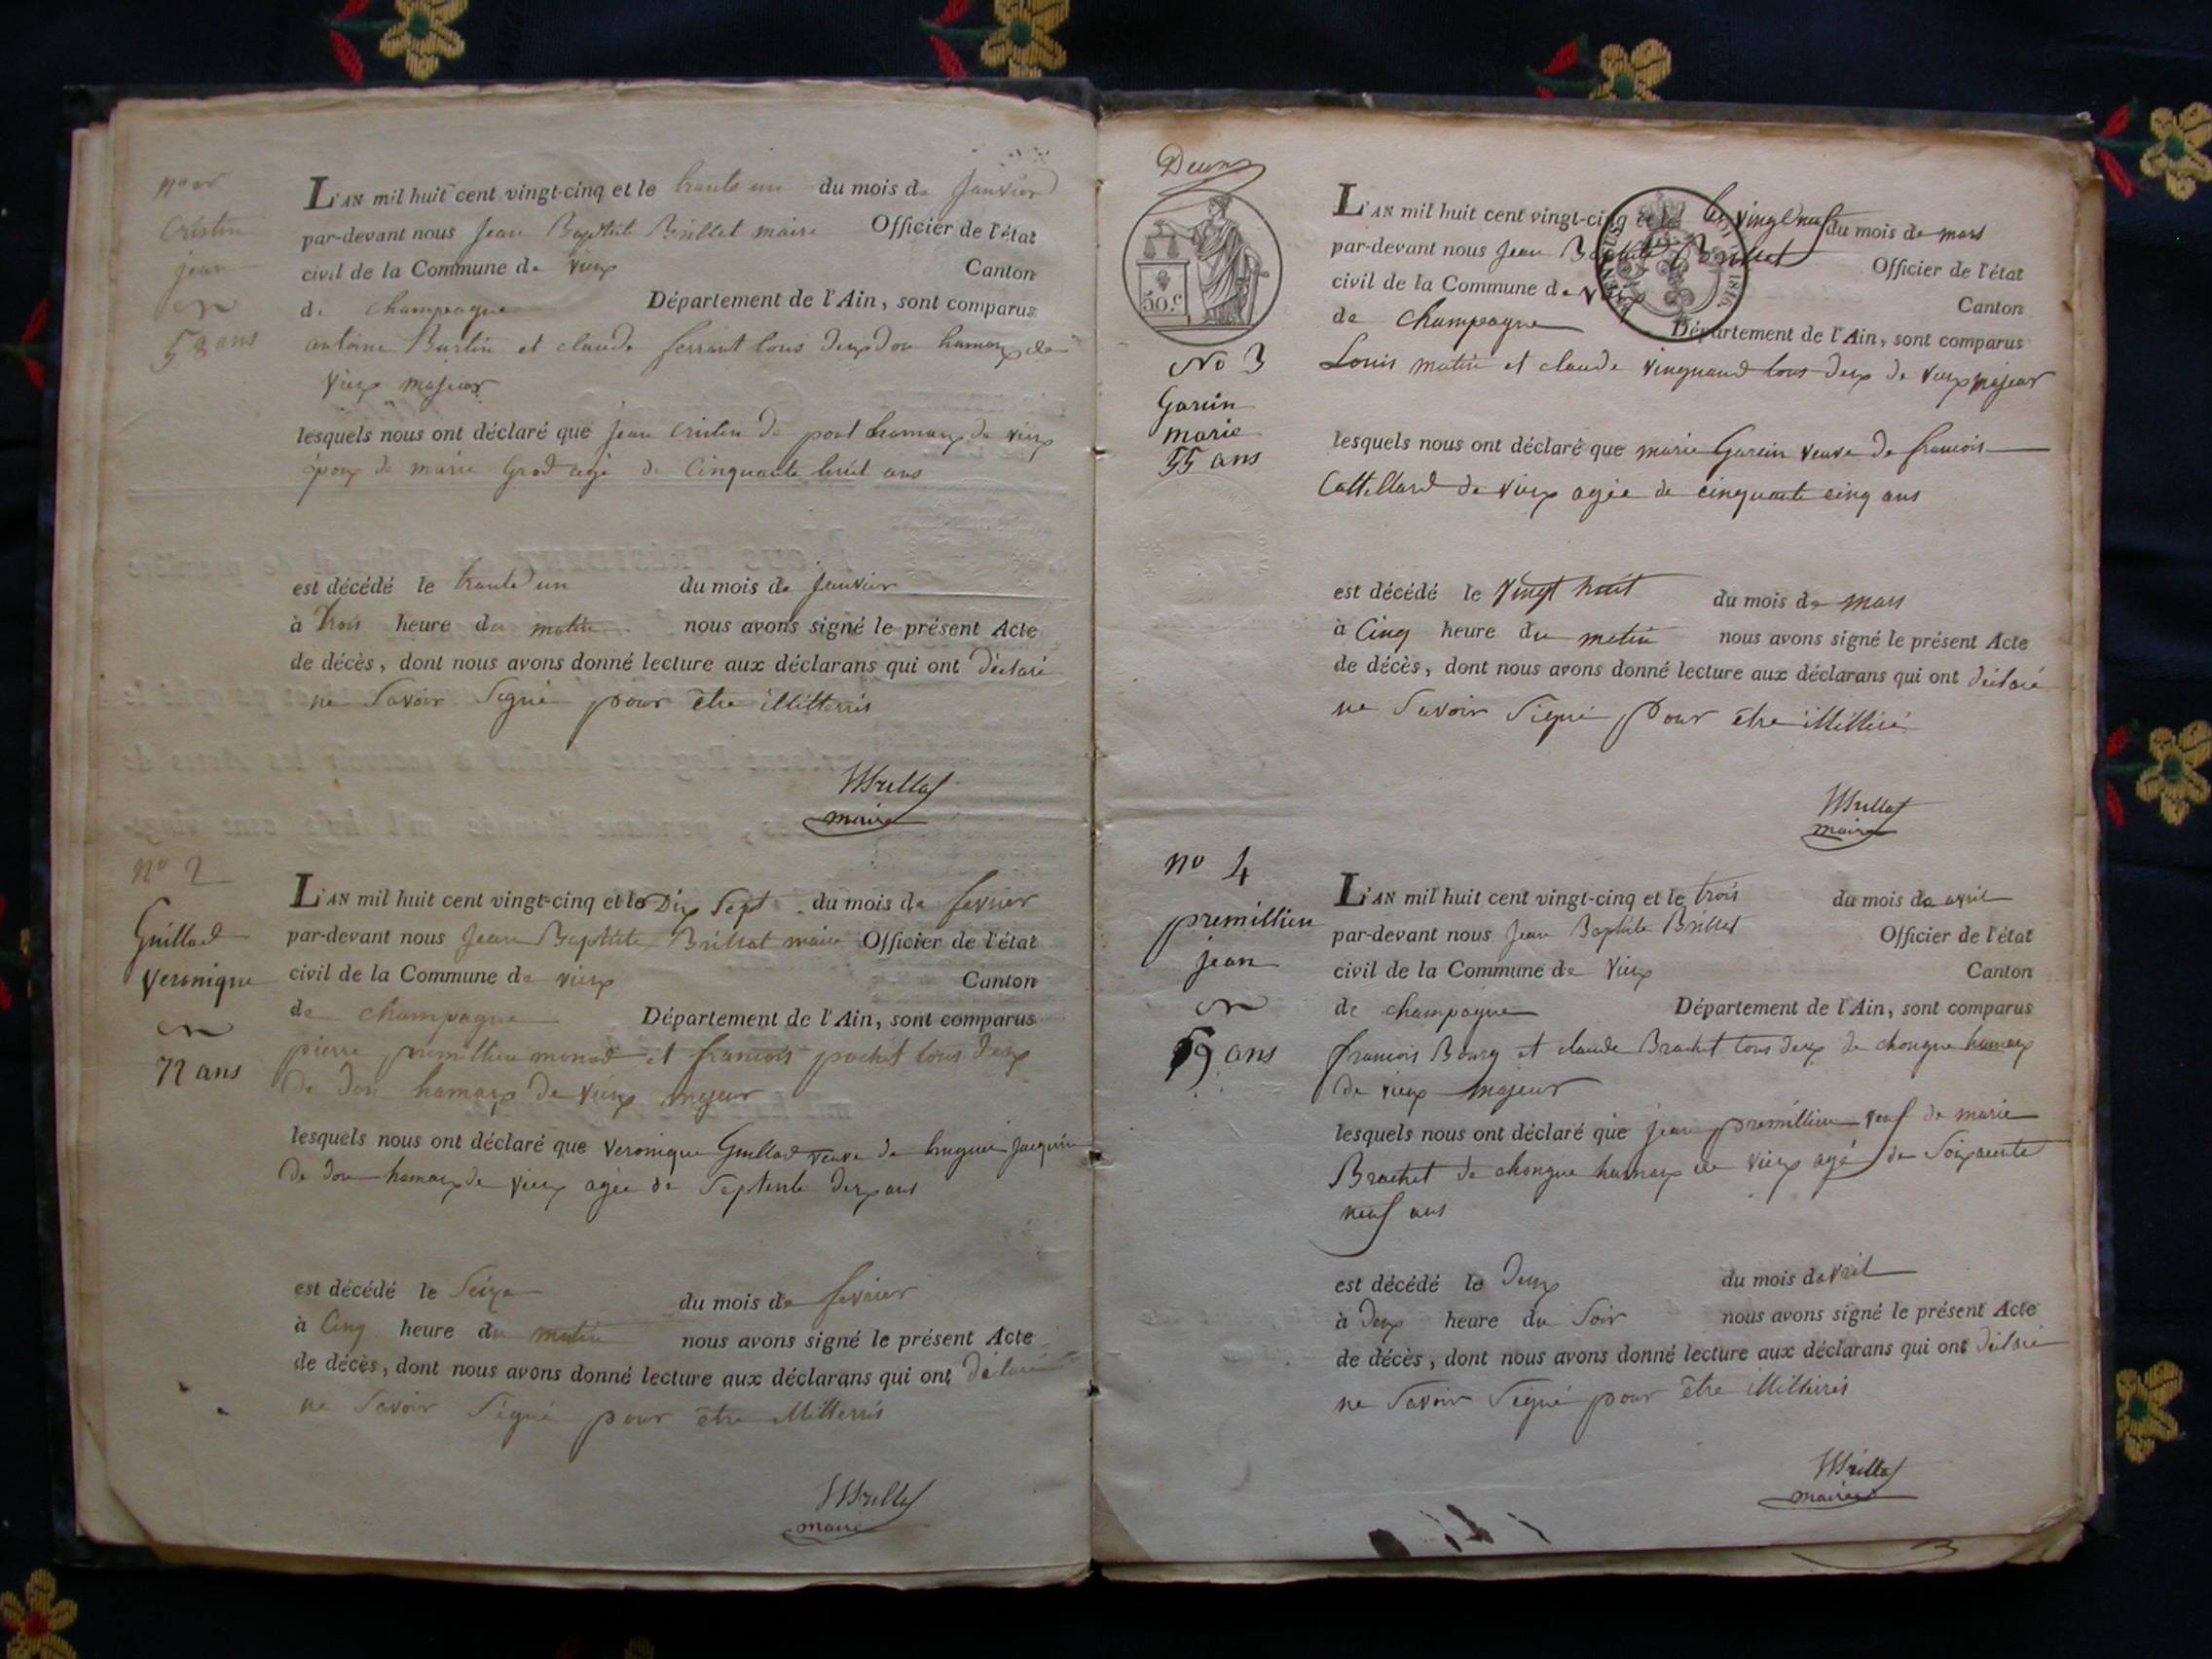 Cristin
jean
58 ans
L'AN mil huit cent vingt-cinq et le trante un du mois de janvier
par-devant nous jean Baptiste Brillat maire Officier de l'état
civil de la Commune de vieux Canton
de champagne Département de l'Ain, sont comparus
antoine Burtin et claude ferrant tous deux don hamaux de
vieux majeur
lesquels nous ont déclaré que jean Cristin de pont hamaux de vieux
époux de marie Grod agé de Cinquante huit ans
est décédé le trante un du mois de janvier
à trois heure du matin nous avons signé le présent Acte
de décès, dont nous avons donné lecture aux déclarans qui ont déclaré
ne Savoir Signé pour être illitterés
Brillat
maire
no 2
Guillod
veronique
72 ans
L'AN mil huit cent vingt-cinq et le Dix Sept du mois de fevrier
par-devant nous jean Baptiste Brillat maire Officier de l'état
civil de la Commune de vieux Canton
de champagne Département de l'Ain, sont comparus
pierre premillieu monod et francois pochet tous deux
de don hamaux de vieux majeur
lesquels nous ont déclaré que veronique Guillod veuve de huguin jacquin
de don hamaux de vieux agée de Septente deux ans
est décédé le Seize du mois de fevrier
à Cinq heure du matin nous avons signé le présent Acte
de décès, dont nous avons donné lecture aux déclarans qui ont déclaré
ne Savoir Signé pour être illitterés
Brillat
maire
Deux
50.c
No 3
Garin
marie
55 ans
L'AN mil huit cent vingt-cinq et le le vingt neuf du mois de mars
par-devant nous jean Baptiste Brillat Officier de l'état
civil de la Commune de vieux Canton
de champagne Département de l'Ain, sont comparus
Louis matin et claude vingnand tous deux de vieux majeur
lesquels nous ont déclaré que marie Garin veuve de francois
Cattelard de vieux agée de cinquante cinq ans
est décédé le vingt huit du mois de mars
à Cinq heure du matin nous avons signé le présent Acte
de décès, dont nous avons donné lecture aux déclarans qui ont déclaré
ne Savoir Signé pour être illitteré
Brillat
maire
no 4
premillieu
jean
69 ans
L'AN mil huit cent vingt-cinq et le trois du mois de avril
par-devant nous jean Baptiste Brillat Officier de l'état
civil de la Commune de vieux Canton
de champagne Département de l'Ain, sont comparus
francois Bourg et claude Brachet tous deux de chongne hamaux
de vieux majeur
lesquels nous ont déclaré que jean premillieu veuf de marie
Brachet de chongne hamaux de vieux agé de Soixante
neuf ans
est décédé le deux du mois davril
à deux heure du Soir nous avons signé le présent Acte
de décès, dont nous avons donné lecture aux déclarans qui ont déclaré
ne Savoir Signé pour être illitterés
Brillat
maire